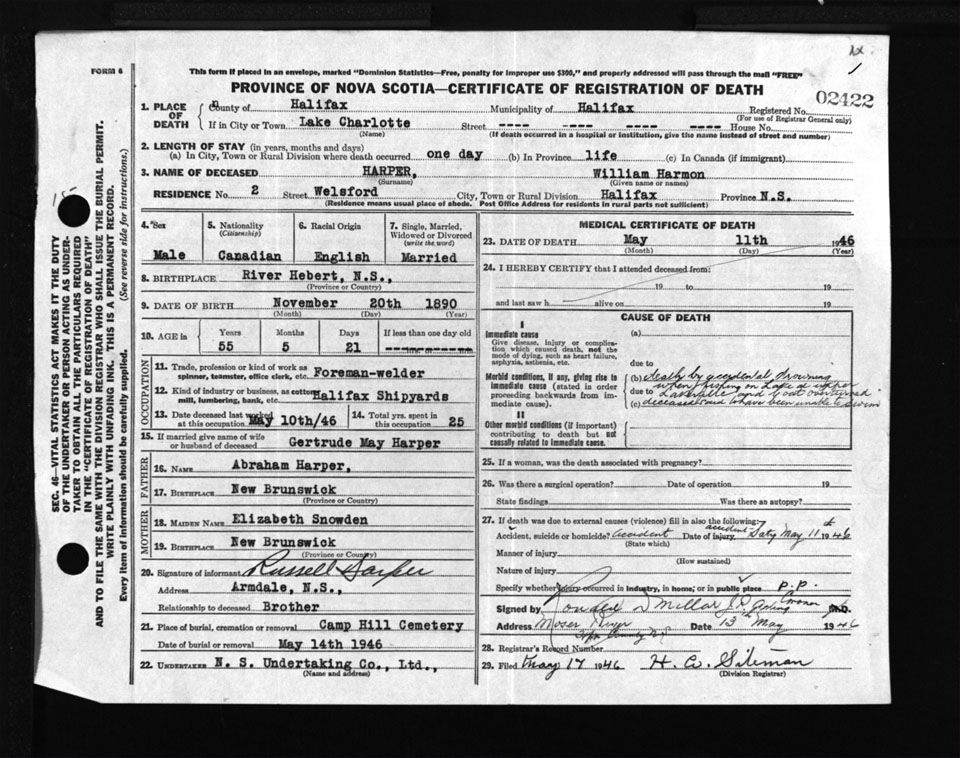 FORM 6
This form if placed in an envelope, marked "Dominion Statistics—Free, penalty for improper use $300," and properly addressed will pass through the mail "FREE"
1
PROVINCE OF NOVA SCOTIA—CERTIFICATE OF REGISTRATION OF DEATH
02422
1. PLACE OF DEATH
County of Halifax Municipality of Halifax Registered No.
(For use of Registrar General only)
If in City or Town Lake Charlotte Street ---- ---- ---- ---- House No.
(Name) (If death occurred in a hospital or institution, give the name instead of street and number)
2. LENGTH OF STAY (in years, months and days)
(a) In City, Town or Rural Division where death occurred one day (b) In Province life (c) In Canada (if immigrant)
3. NAME OF DECEASED HARPER, William Harmon
(Surname) (Given name or names)
RESIDENCE No. 2 Street Welsford City, Town or Rural Division Halifax Province N.S.
(Residence means usual place of abode. Post Office Address for residents in rural parts not sufficient)
4. Sex
Male
5. Nationality
(Citizenship)
Canadian
6. Racial Origin
English
7. Single, Married, Widowed or Divorced
(write the word)
Married
8. BIRTHPLACE River Hebert, N.S.,
(Province or Country)
9. DATE OF BIRTH November 20th 1890
(Month) (Day) (Year)
10. AGE in Years Months Days If less than one day old
55 5 21
OCCUPATION
11. Trade, profession or kind of work as spinner, teamster, office clerk, etc. Foreman-welder
12. Kind of industry or business, as cotton mill, lumbering, bank, etc. Halifax Shipyards
13. Date deceased last worked at this occupation May 10th/46
14. Total yrs. spent in this occupation 25
15. If married give name of wife or husband of deceased Gertrude May Harper
FATHER
16. NAME Abraham Harper,
17. BIRTHPLACE New Brunswick
(Province or Country)
MOTHER
18. MAIDEN NAME Elizabeth Snowden
19. BIRTHPLACE New Brunswick
(Province or Country)
20. Signature of informant Russell Harper
Address Armdale, N.S.,
Relationship to deceased Brother
21. Place of burial, cremation or removal Camp Hill Cemetery
Date of burial or removal May 14th 1946
22. UNDERTAKER N. S. Undertaking Co., Ltd.,
(Name and address)
MEDICAL CERTIFICATE OF DEATH
23. DATE OF DEATH May 11th 1946
(Month) (Day) (Year)
24. I HEREBY CERTIFY that I attended deceased from:
19 to 19
and last saw h alive on 19
CAUSE OF DEATH
I
Immediate cause
Give disease, injury or complication which caused death, not the mode of dying, such as heart failure, asphyxia, asthenia, etc.
(a)
due to
Morbid conditions, if any, giving rise to immediate cause (stated in order proceeding backwards from immediate cause).
(b) death by accidental drowning
when fishing on Lake at upper
due to Lakeville and boat overturned
(c) deceased said to have been unable to swim
II
Other morbid conditions (if important) contributing to death but not causally related to immediate cause.
25. If a woman, was the death associated with pregnancy?
26. Was there a surgical operation? Date of operation 19
State findings Was there an autopsy?
27. If death was due to external causes (violence) fill in also the following:
Accident, suicide or homicide? accident Date of injury accident Saty May 11th 1946
(State which)
Manner of injury
(How sustained)
Nature of injury
Specify whether injury occurred in industry, in home, or in public place p.p.
Signed by Donald D Millar J.P. Acting Coroner M.D.
Address Moser River Date 13th May 1946
Hfx County N.S.
28. Registrar's Record Number
29. Filed May 17 1946 H. W. Sileman
(Division Registrar)
SEC. 46—VITAL STATISTICS ACT MAKES IT THE DUTY OF THE UNDERTAKER OR PERSON ACTING AS UNDERTAKER TO OBTAIN ALL THE PARTICULARS REQUIRED IN THE "CERTIFICATE OF REGISTRATION OF DEATH" AND TO FILE THE SAME WITH THE DIVISION REGISTRAR WHO SHALL ISSUE THE BURIAL PERMIT.
WRITE PLAINLY WITH UNFADING INK. THIS IS A PERMANENT RECORD.
Every item of information should be carefully supplied. (See reverse side for instructions.)